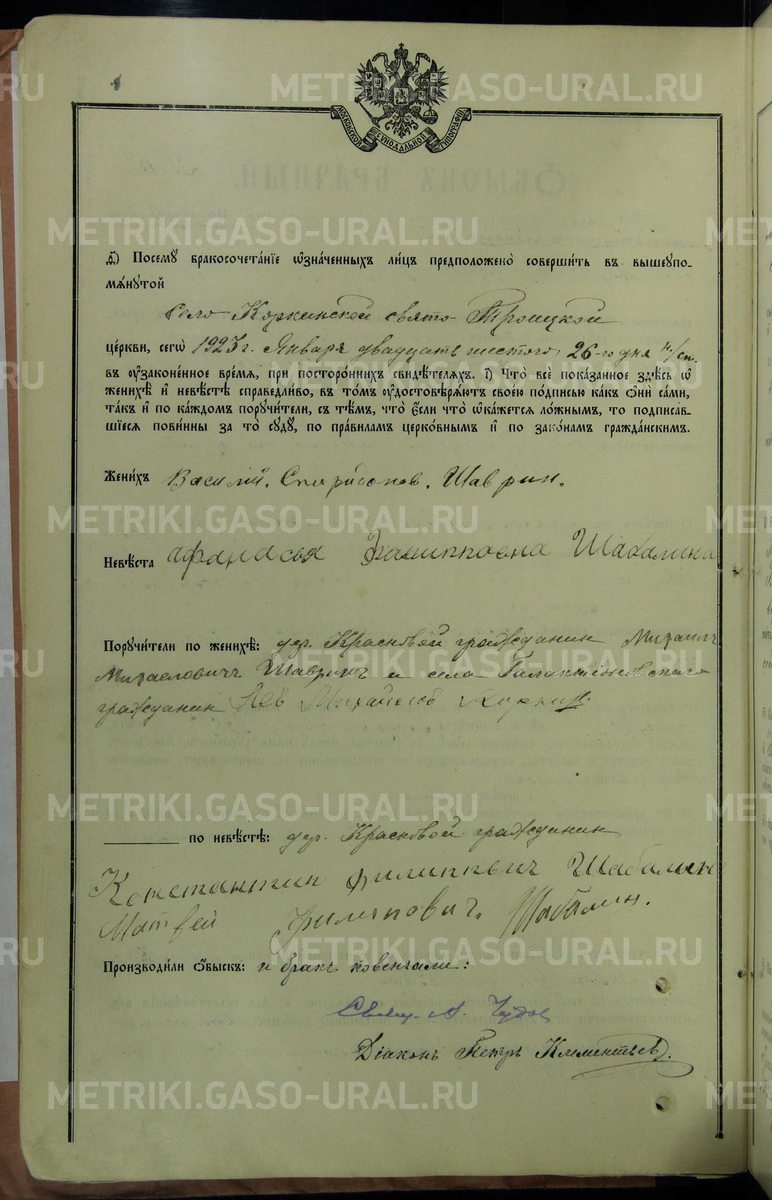 МОСКОВСКОЙ СѴНОДАЛЬНОЙ ТИПОГРАФІИ
д҃) Посемꙋ̀ бракосочета́нїе ѡ҆зна́ченныхъ ли́цъ предположено̀ соверши́ть въ вышеꙋпо-
мѧ́нꙋтой
село Коркинской свято-Троицкой
це́ркви, сегѡ̀ 1923 г. Января двадцать шестого 26-го дня н/ст.
въ ᲂу҆зако́ненное вре́мѧ, при посторо́ннихъ свидѣ́телѧхъ. є҃) Что̀ всѐ пока́занное здѣ́сь ѡ҆
женихѣ̀ и҆ невѣ́стѣ справедли́во, въ то́мъ ᲂу҆достовѣрѧ́ютъ свое́ю по́дписью ка́къ ѻ҆нѝ са́ми,
та́къ и҆ по ка́ждомъ порꙋчи́тели, съ тѣ́мъ, что̀ є҆́сли что̀ ѡ҆ка́жетсѧ ло́жнымъ, то подписав-
шїесѧ пови́нны за то̀ сꙋдꙋ̀, по пра́виламъ церко́внымъ и҆ по зако́намъ гражда́нскимъ.
Жени́хъ Василий. Спиридонов. Шаврин.
Невѣ́ста Афанасья Филипповна Шабалина
Порꙋчи́тели по женихѣ̀: дер. Красновой гражданин Михаил
Михаеловичъ Шавринъ и села Галактионовского
гражданин Лев Михайлов Коркин.
по невѣ́стѣ: дер. Красновой гражданин
Константин Филиппович Шабалин
Матфей Филипович. Шабалин.
Производи́ли ѻ҆́быскъ: и бракъ повенчали:
Свящ. А. Чудов
Діаконъ Петръ Климентьев.
METRIKI.GASO-URAL.RU